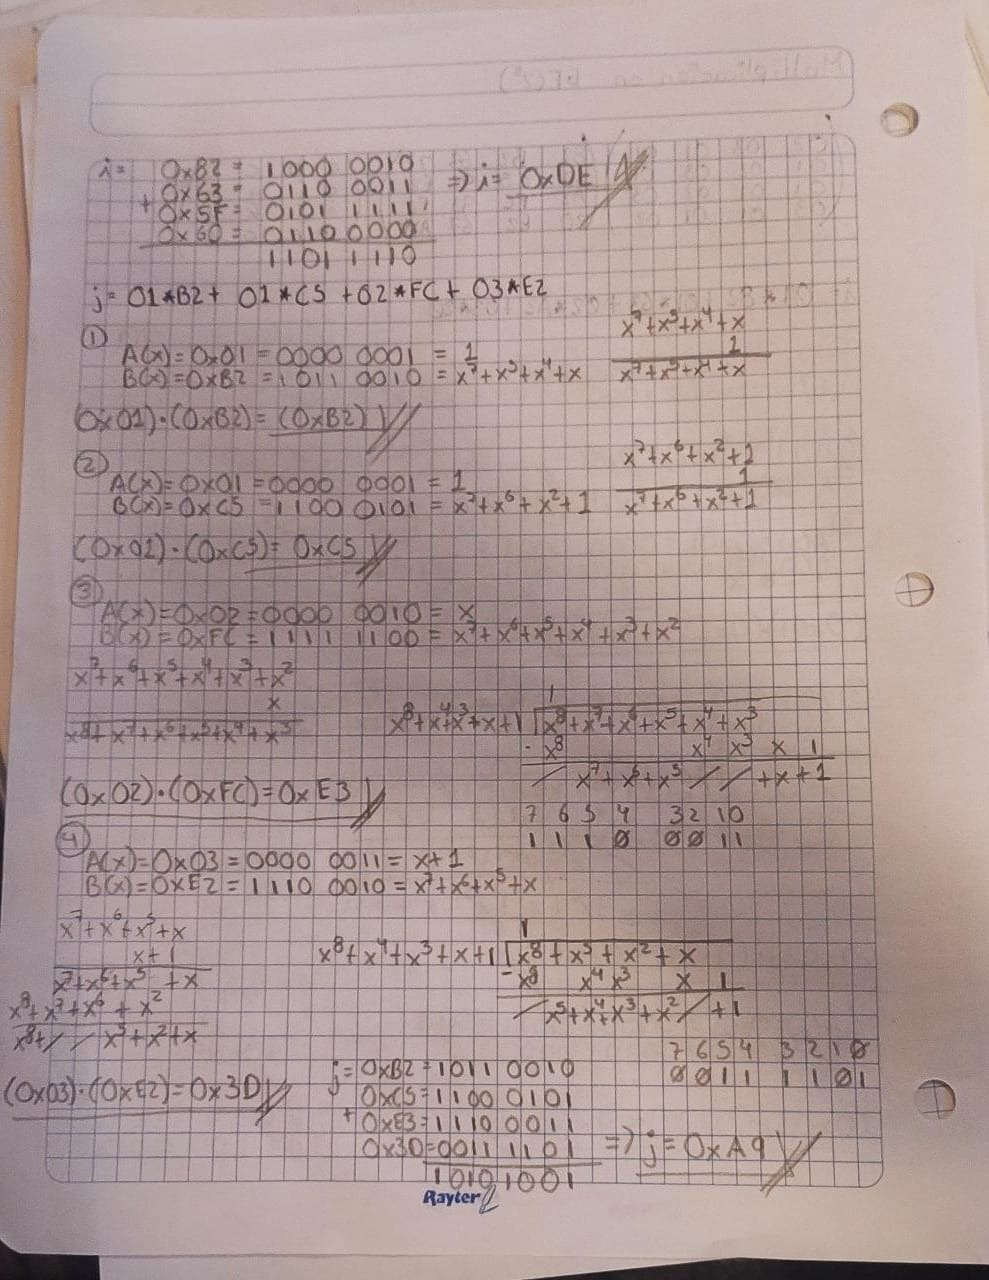 i= 0x82 = 1000 0010
+ 0x63 = 0110 0011 => i= 0xDE
0x5F = 0101 1111
0x60 = 0110 0000
1101 1110
j= 01*B2 + 01*C5 + 02*FC + 03*E2
①
x⁷+x⁵+x⁴+x
1
A(x)=0x01=0000 0001 = 1
B(x)=0xB2 =1011 0010 = x⁷+x⁵+x⁴+x
x⁷+x⁵+x⁴+x
(0x01)·(0xB2)=(0xB2)
②
x⁷+x⁶+x²+1
1
A(x)=0x01=0000 0001 = 1
B(x)=0xC5 =1100 0101 = x⁷+x⁶+x²+1
x⁷+x⁶+x²+1
(0x01)·(0xC5)=0xC5
③
A(x)=0x02=0000 0010= x
B(x)=0xFC=1111 1100 = x⁷+x⁶+x⁵+x⁴+x³+x²
x⁷+x⁶+x⁵+x⁴+x³+x²
x
x⁸+x⁷+x⁶+x⁵+x⁴+x³
1
x⁸+x⁴+x³+x+1 x⁸+x⁷+x⁶+x⁵+x⁴+x³
-x⁸ x⁴ x³ x 1
x⁷+x⁶+x⁵ +x+1
(0x02)·(0xFC)=0xE3
7 6 5 4 3 2 1 0
1 1 1 0 0 0 1 1
④
A(x)=0x03=0000 0011= x+1
B(x)=0xE2=1110 0010 = x⁷+x⁶+x⁵+x
x⁷+x⁶+x⁵+x
x+1
x⁷+x⁶+x⁵ +x
x⁸+x⁷+x⁶ + x²
x⁸+ x⁵+x²+x
1
x⁸+x⁴+x³+x+1 x⁸+x⁵+x²+x
-x⁸ x⁴ x³ x 1
x⁵+x⁴+x³+x² +1
7 6 5 4 3 2 1 0
0 0 1 1 1 1 0 1
(0x03)·(0xE2)=0x3D
j= 0xB2=1011 0010
0xC5=1100 0101
+ 0xE3=1110 0011
0x3D=0011 1101 => j=0xA9
1010 1001
Rayter